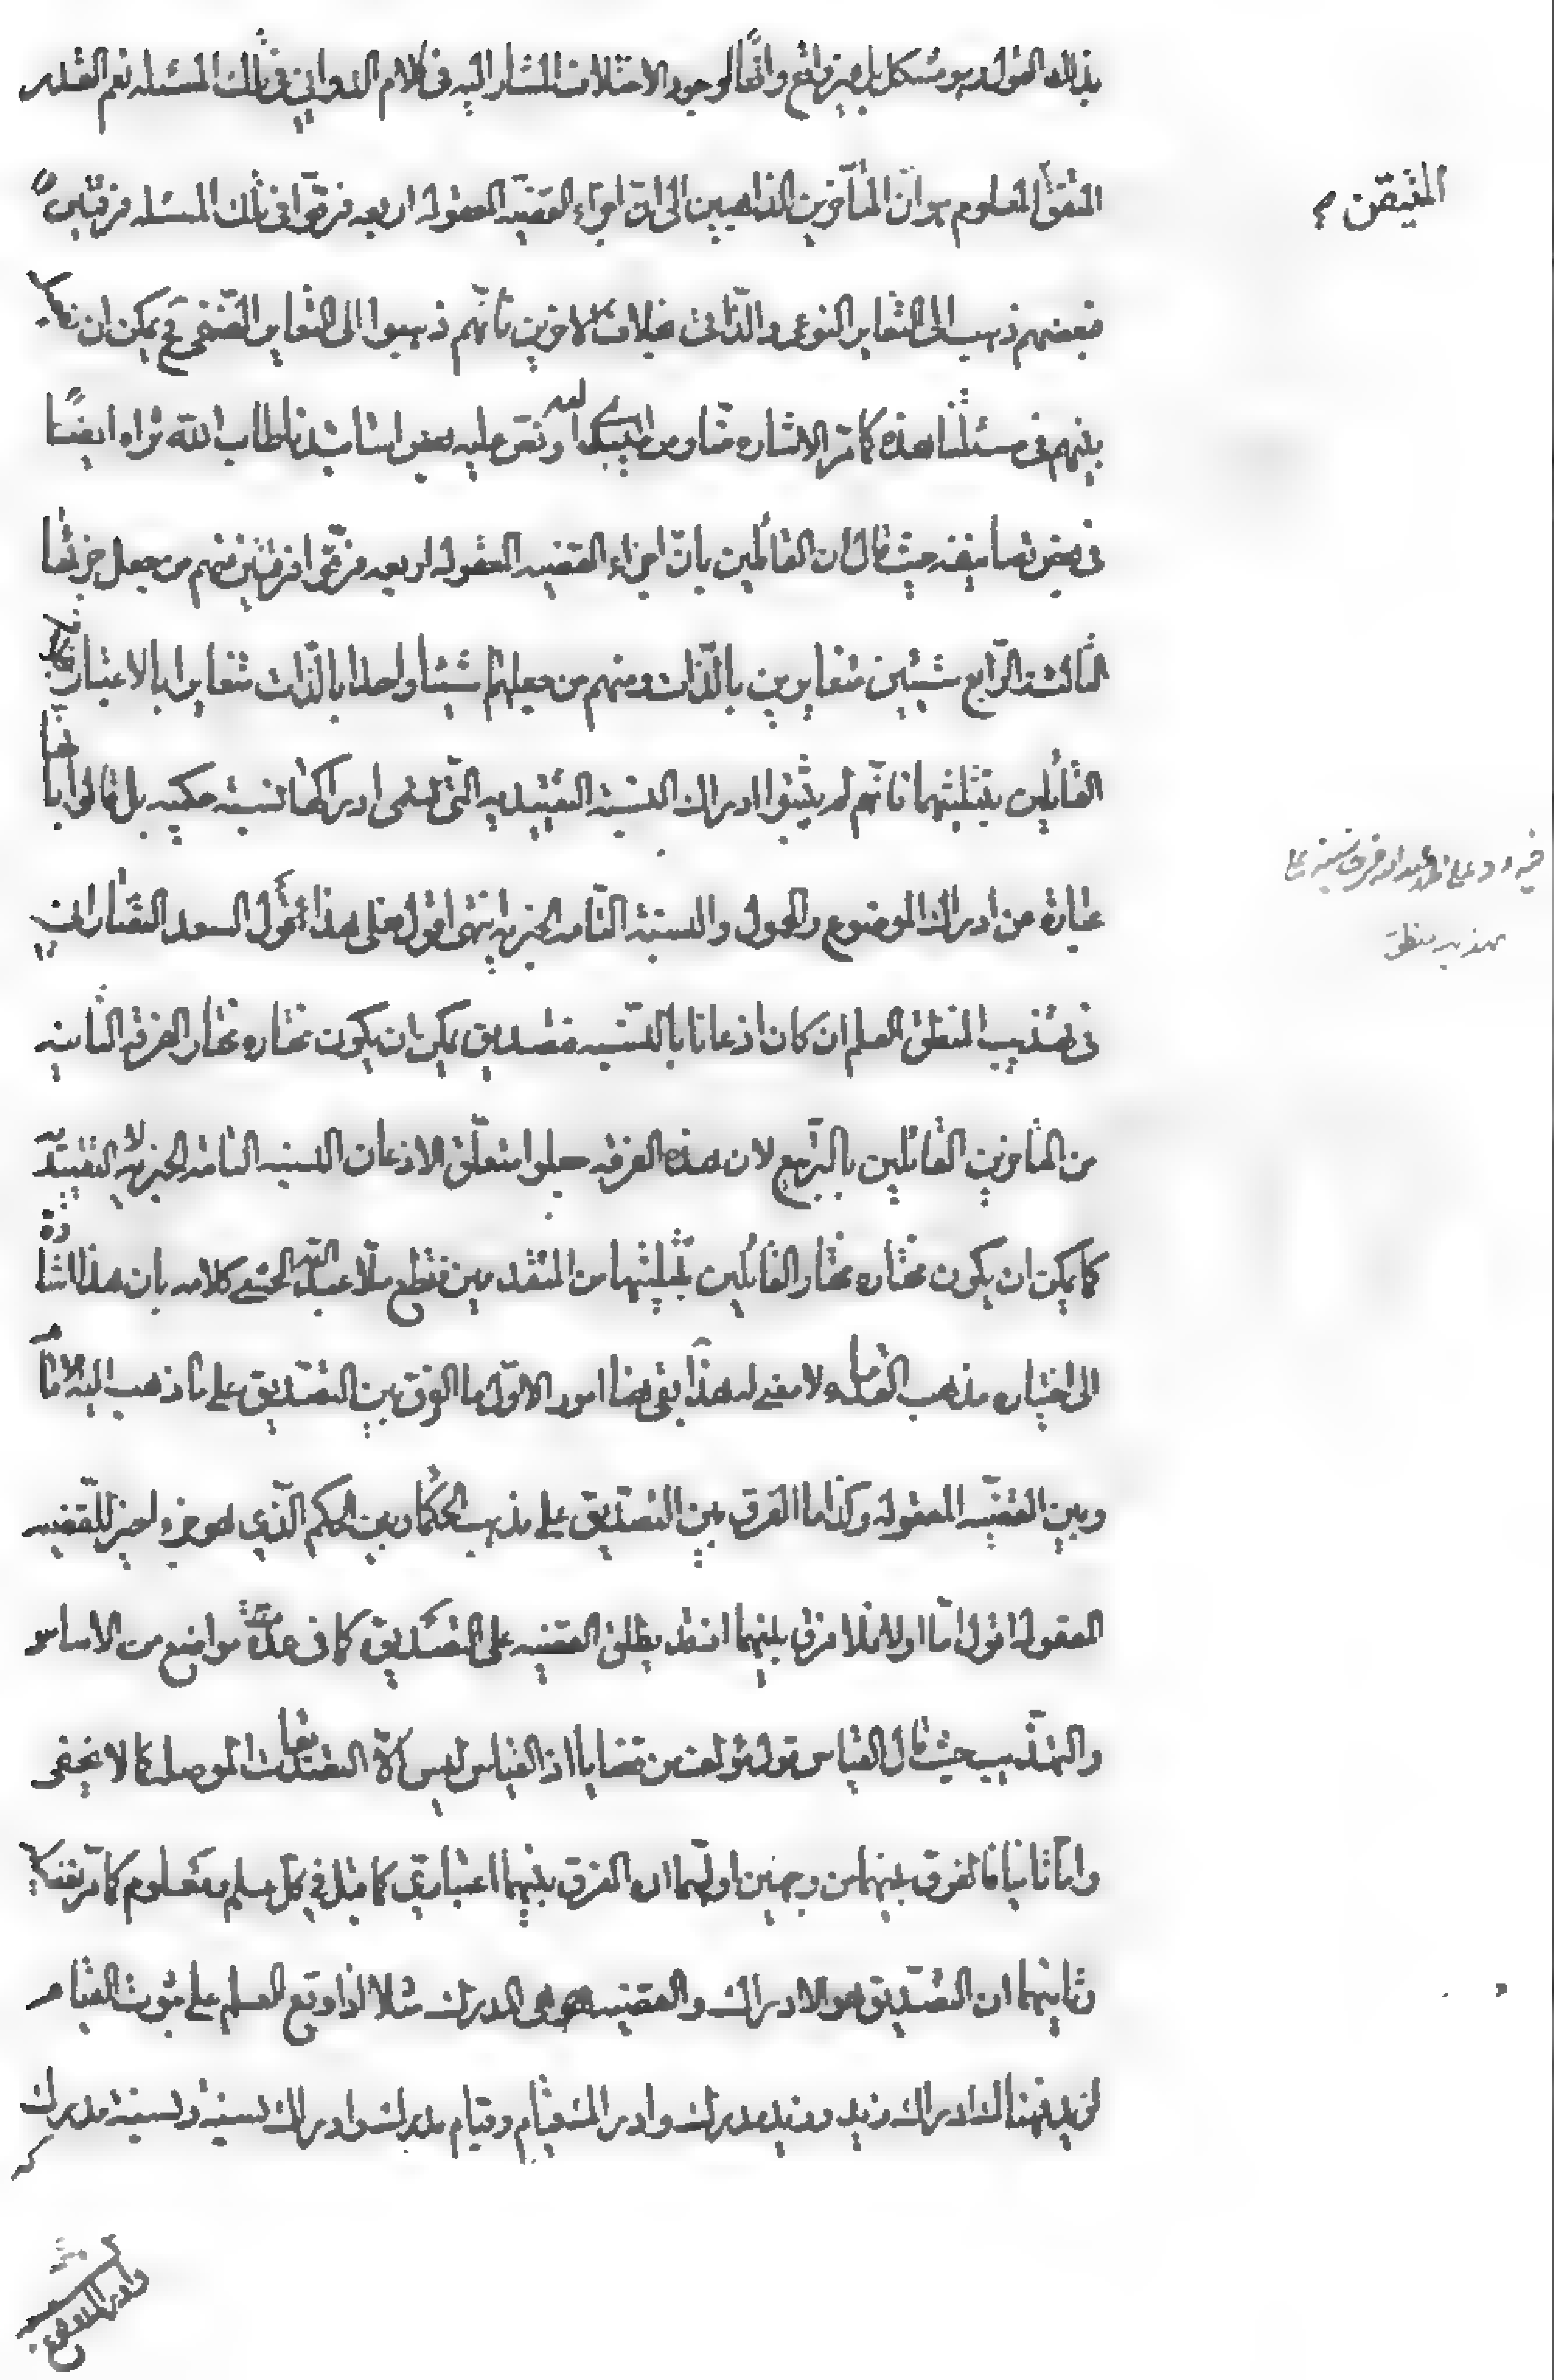 بذلك القول هو مشكل بل غير واقع وانما لوجود الاحتمالات المشار اليه فى كلام الدوانى فى تلك المسئله نعم القدر
المتيقن
المعلوم هو ان المتأخرين الذاهبين الى ان اجزاء القضيه المعقوله اربعه فرقوا فى تلك المسئله فرقتين
فبعضهم ذهب الى التغاير النوعى والذاتى خلاف الاخرين فانهم ذهبوا الى التغاير الصنفى فح يمكن ان
بينهم فى مسئلتنا هذه كما مر الاشاره منا ومن ونص عليه بعض اساتيدنا طاب الله ثراه ايضا
فى بعض تصانيفه حيث قال ان القائلين بان اجزاء القضيه المعقوله اربعه فرقوا فرقتين منهم من جعل جزئها
الثالث والرابع شيئين متغايرين بالذات ومنهم من جعلهما شيئا واحدا بالذات متغايرا بالاعتبار بخلاف
القائلين بتثليثها فانهم لم يثبتوا ادراك النسبة التقييديه التى يسمى ادراكها نسبة حكميه بل قالوا بانها
عبارة عن ادراك الموضوع والمحمول والنسبة التامه الخبريه انتهى اقول فعلى هذا قول السعد التفتازانى
تهذيب منطق
فى تهذيب المنطق العلم ان كان اذعانا بالنسبه فتصديق يمكن ان يكون مختاره مختار الفرقه الثانيه
من المتاخرين القائلين بالتربيع لان هذه الفرقه جعلوا متعلق الاذعان النسبه التامه الخبريه لا التقييديه
كما يمكن ان يكون مختاره مختار القائلين بتثليثها من المتقدمين فقطع ملا عبد الله الحسنى كلامه بان هذا اشارة
الى اختياره مذهب القدماء لا معنى له هذا بقى هنا امور الاول ما الفرق بين التصديق على ما ذهب اليه الامام
وبين القضيه المعقوله وكذا ما الفرق بين التصديق على مذهب الحكماء وبين الحكم الذى هو جزء اخير للقضيه
المعقوله اقول اما اولا فلا فرق بينهما اذ قد يطلق القضيه على التصديق كما فى عدة مواضع من الاساس
والتهذيب حيث قال القياس قول مؤلف من قضايا اذ القياس ليس الا التصديقات الموصله كما لا يخفى
واما ثانيا فالفرق بينهما من وجهين اولهما ان الفرق بينهما اعتبارى كما قيل فى كل علم ومعلوم كما مر
ثانيهما ان التصديق هو الادراك والقضيه هى المدرك مثلا اذا وقع العلم على ثبوت القيام
لزيد فهناك ادراك زيد وزيد مدرك وادراك قيام وقيام مدرك وادراك نسبة ونسبة مدرك